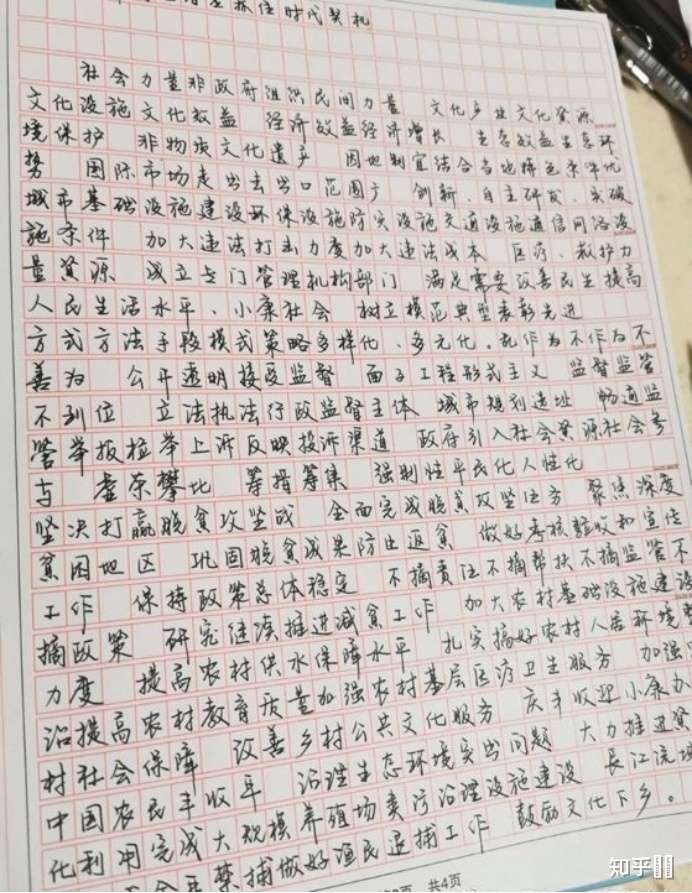 抓住时代契机
社会力量非政府组织民间力量 文化产业文化资源
文化设施文化权益 经济效益经济增长 生态效益生态环
境保护 非物质文化遗产 因地制宜结合当地特色条件优
势 国际市场走出去出口范围广 创新、自主研发、突破
城市基础设施建设环保设施防灾设施交通设施通信网络设
施条件 加大违法打击力度加大违法成本 医疗、救护力
量资源 成立专门管理机构部门 满足需要改善民生提高
人民生活水平、小康社会 树立模范典型表彰先进
方式方法手段模式策略多样化、多元化。乱作为不作为不
善为 公开透明接受监督 面子工程形式主义 监督监管
不到位 立法执法行政监督主体 城市规划选址 畅通监
管举报检举上诉反映投诉渠道 政府引入社会资源社会参
与 虚荣攀比 筹措筹集 强制性平民化人性化
坚决打赢脱贫攻坚战 全面完成脱贫攻坚任务 聚焦深度
贫困地区 巩固脱贫成果防止返贫 做好考核验收和宣传
工作 保持政策总体稳定 不摘责任不摘帮扶不摘监管不
摘政策 研究继续推进减贫工作 加大农村基础设施建设
力度 提高农村供水保障水平 扎实搞好农村人居环境整
治提高农村教育质量加强农村基层医疗卫生服务 加强
村社会保障 改善乡村公共文化服务 庆丰收迎小康办
中国农民丰收年 治理生态环境突出问题 大力推进
化利用完成大规模养殖场粪污治理设施建设 长江流域
禁捕做好渔民退捕工作 鼓励文化下乡。
共4页
知乎